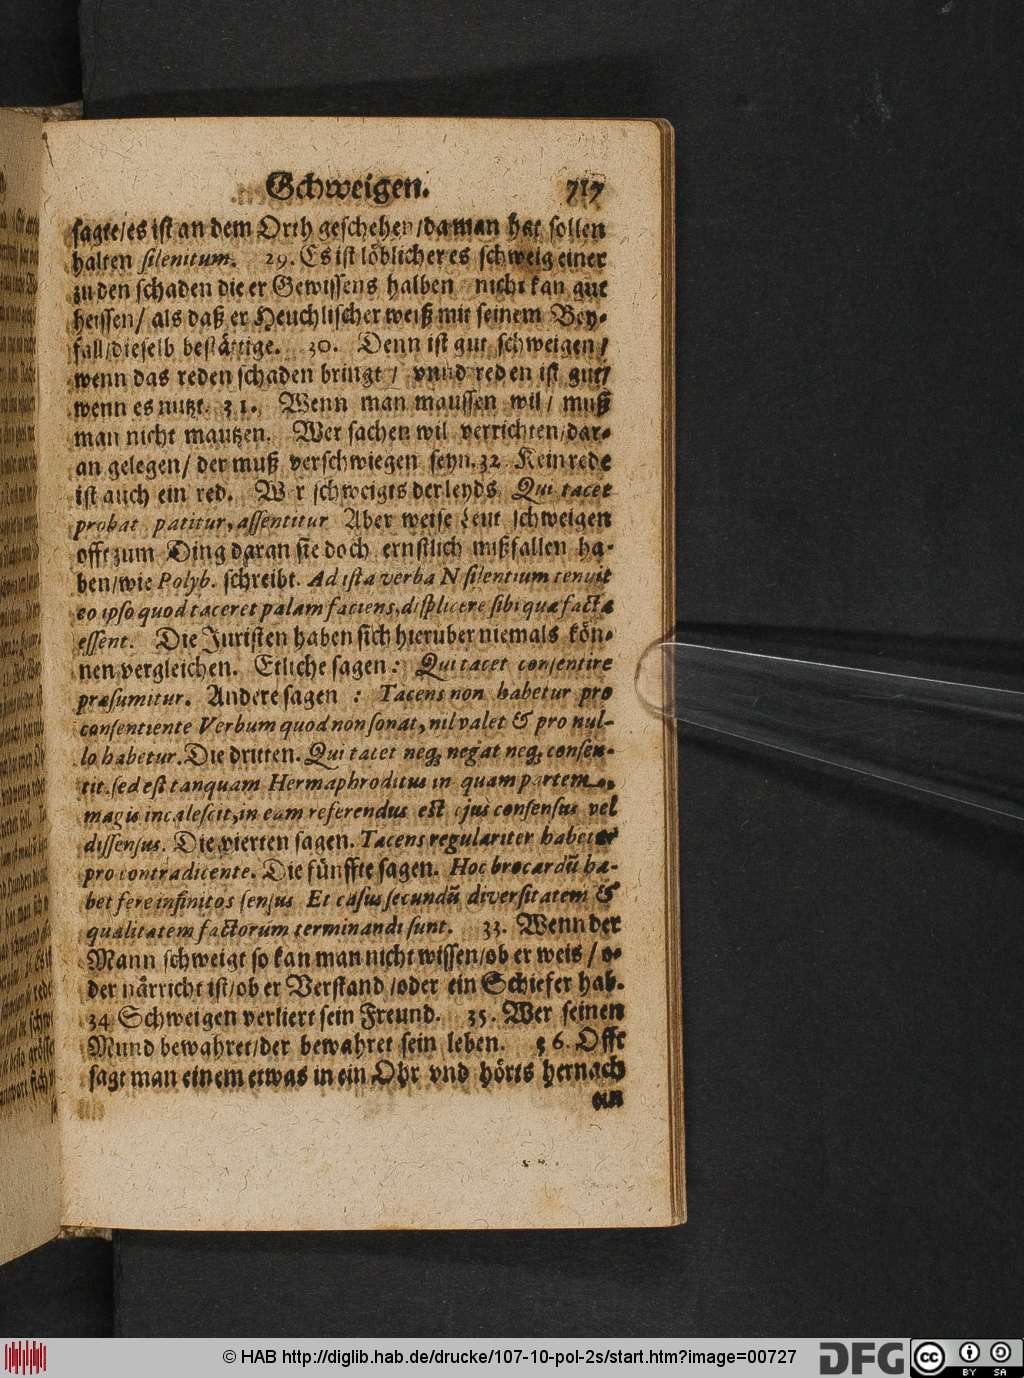 Schweigen. 717
sagte/es ist an dem Orth geschehen/da man hat sollen
halten silenitum. 29. Es ist löblicher es schweig einer
zu den schaden die er Gewissens halben nicht kan gut
heissen/ als daß er Heuchlischer weiß mit seinem Bey-
fall/dieselb bestättige. 30. Denn ist gut schweigen/
wenn das reden schaden bringt/ vnnd reden ist gut/
wenn es nutzt. 31. Wenn man maussen wil/ muß
man nicht mautzen. Wer sachen wil verrichten/dar-
an gelegen/ der muß verschwiegen seyn. 32 Kein rede
ist auch ein red. W r schweigts der leyds. Qui tacet
probat patitur, assentitur Aber weise Leut schweigen
offt zum Ding daran sie doch ernstlich mißfallen ha-
ben/wie Polyb. schreibt. Ad ista verba N silentium tenuit
eo ipso quod taceret palam faciens, displicere sibi quæ facta
essent. Die Juristen haben sich hierüber niemals kön-
nen vergleichen. Etliche sagen: Qui tacet consentire
præsumitur. Andere sagen : Tacens non habetur pro
consentiente Verbum quod non sonat, nil valet & pro nul-
lo habetur. Die dritten. Qui tacet neq; negat neq; consen-
tit. sed est tanquam Hermaphroditus in quam partem
magis incalescit, in eam referendus est ejus consensus vel
dissensus. Die vierten sagen. Tacens regulariter habetur
pro contradicente. Die fünffte sagen. Hoc brocardũ ha-
bet fere infinitos sensus Et casus secundũ diversitatem &
qualitatem factorum terminandi sunt. 33. Wenn der
Mann schweigt so kan man nicht wissen/ob er weis / o-
der närricht ist/ob er Verstand /oder ein Schiefer hab.
34 Schweigen verliert sein Freund. 35. Wer seinen
Mund bewahret/der bewahret sein leben. 36. Offt
sagt man einem etwas in ein Ohr vnd hörts hernach
an
© HAB http://diglib.hab.de/drucke/107-10-pol-2s/start.htm?image=00727
DFG
cc
BY SA